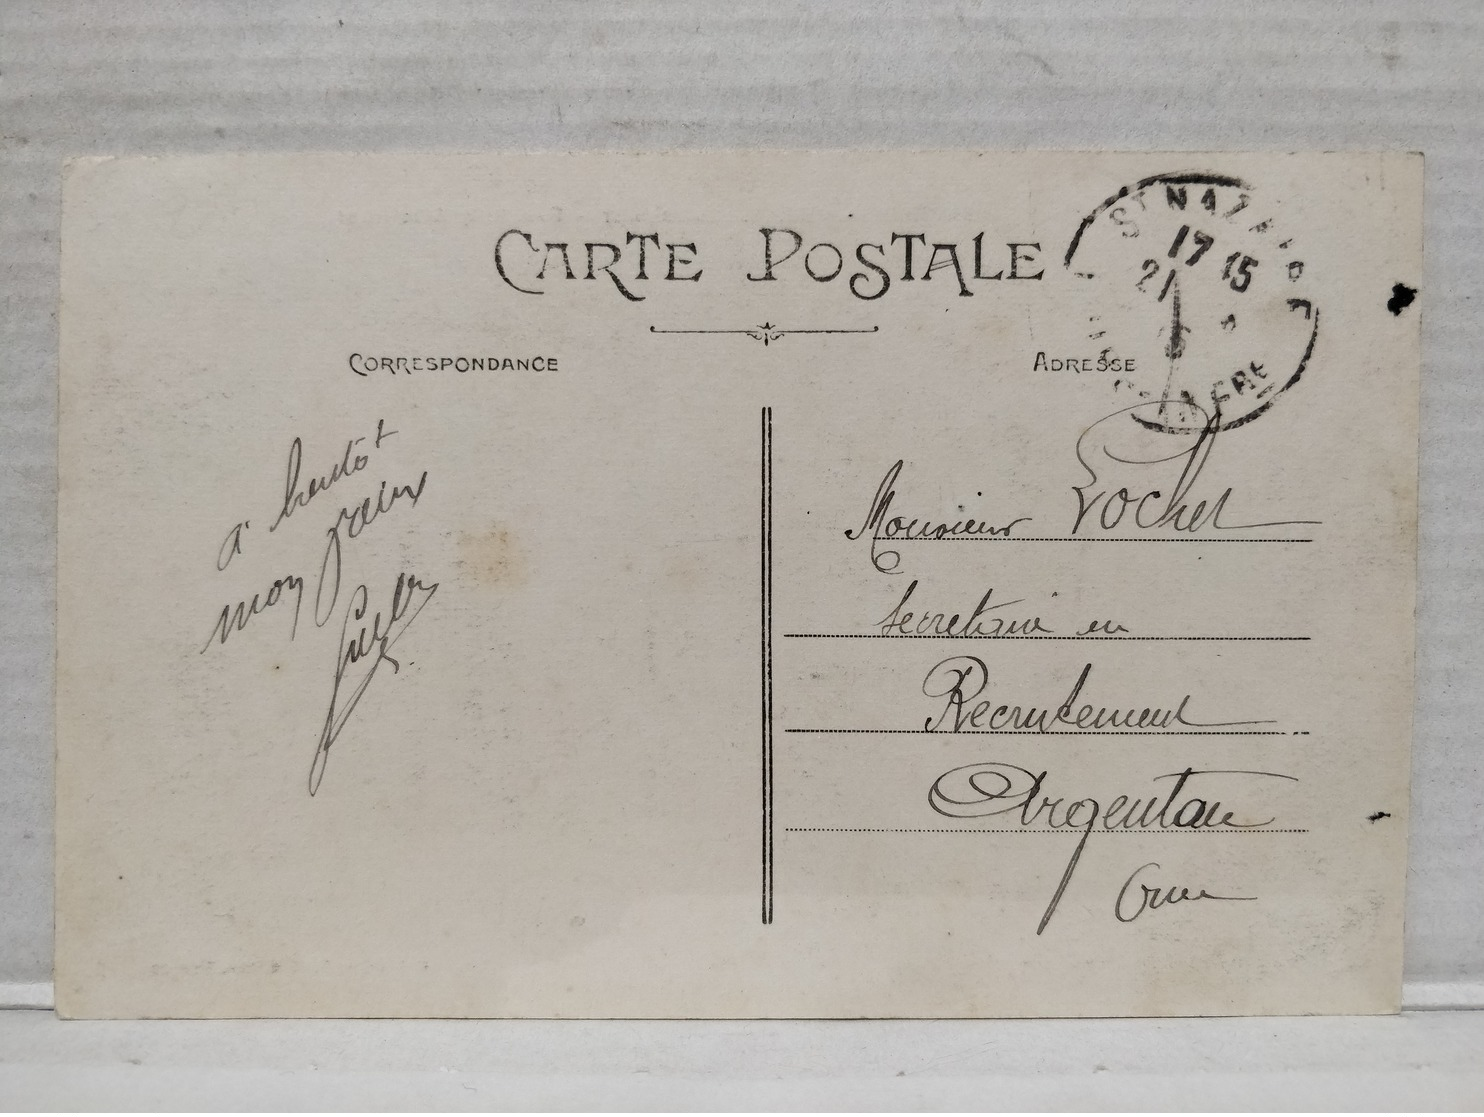 CARTE POSTALE
CORRESPONDANCE
ADRESSE
ST NAZAIRE
17 15
21
à bientôt
mon vieux
Monsieur Lochet
Secretaire au
Recrutement
Argentan
Orne